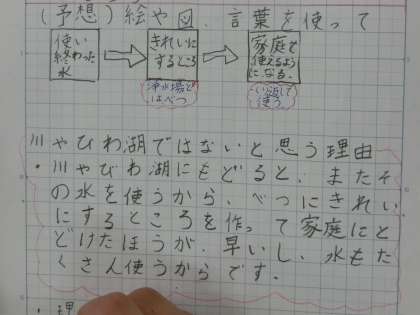 (予想)絵や図、言葉を使って
使い
終わった
水
きれいに
するところ
家庭で
使えるよう
になる。
浄水場と
はべつ
使う。
川やびわ湖ではないと思う理由
・川やびわ湖にもどると、またそ
の水を使うから、べつにきれい
にするところを作って家庭にと
どけたほうが、早いし、水もた
くさん使うからです。